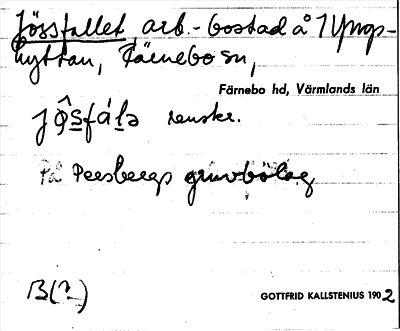 Jössfallet, arb.-bostad å Yngs-
hyttan, Färnebo sn,
Färnebo hd, Värmlands län
renskr.
På Persbergs gruvbolag
B(?)
GOTTFRID KALLSTENIUS 1902